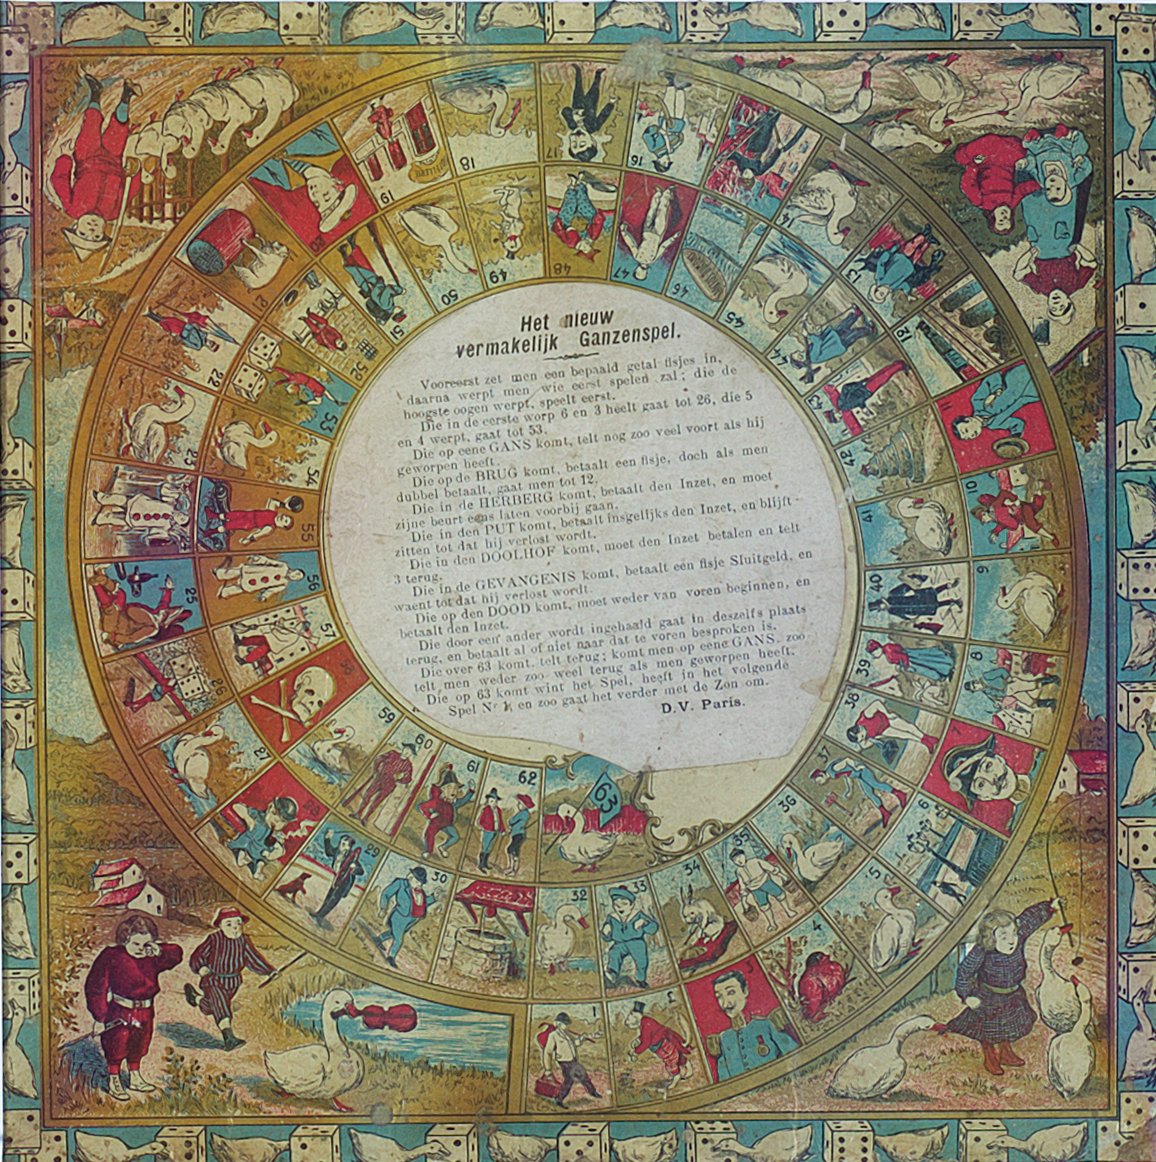 Het nieuw
vermakelijk Ganzenspel.
Vooreerst zet men een bepaald getal fisjes in,
daarna werpt men wie eerst spelen zal; die de
hoogste oogen werpt, speelt eerst.
Die in de eerste worp 6 en 3 heeft gaat tot 26, die 5
en 4 werpt, gaat tot 53.
Die op eene GANS komt, telt nog zoo veel voort als hij
geworpen heeft.
Die op de BRUG komt, betaalt een fisje, doch als men
dubbel betaalt, gaat men tot 12.
Die in de HERBERG komt, betaalt den Inzet, en moet
zijne beurt eens laten voorbij gaan.
Die in den PUT komt, betaalt insgelijks den Inzet, en blijft
zitten tot dat hij verlost wordt.
Die in den DOOLHOF komt, moet den Inzet betalen en telt
3 terug.
Die in de GEVANGENIS komt, betaalt een fisje Sluitgeld, en
waent tot dat hij verlost wordt.
Die op den DOOD komt, moet weder van voren beginnen, en
betaalt den Inzet.
Die door een ander wordt ingehaald gaat in deszelfs plaats
terug, en betaalt al of niet naar dat te voren besproken is.
Die over 63 komt, telt terug; komt men op eene GANS, zoo
telt men weder zoo veel terug als men geworpen heeft.
Die op 63 komt wint het Spel, heeft in het volgende
Spel N° 1, en zoo gaat het verder met de Zon om.
D.V. Paris.
1
4
5
6
7
8
9
10
12
13
14
16
17
18
19
21
22
23
25
26
29
30
32
33
34
35
36
38
39
40
41
42
43
45
46
47
48
49
50
51
52
53
54
55
56
57
59
60
61
62
63